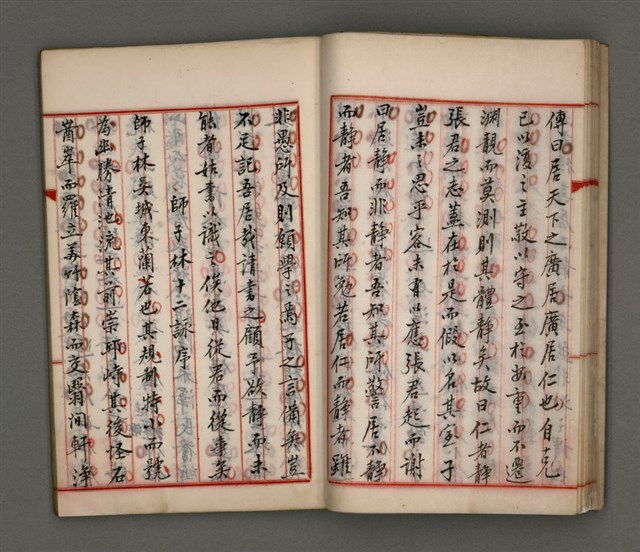 傳曰居天下之廣居廣居仁也自克
己以復之主敬以守之至於安重而不遷
淵靚而莫測則其體靜矣故曰仁者靜
張君之志蓋在於是而假以名其室子
豈未之思乎客未有以應張君起而謝
曰居靜而非靜者吾知其所警居不靜
而靜者吾知其所勉若居仁而靜者雖
非愚所及則願學之焉子之言備矣豈
不足記吾居哉請書之顧予欲靜而未
能者姑書以識之俟他日從君而從事矣
師子林十二詠序
師子林吳城東蘭若也其規制特小而號
為幽勝清池流其前崇邱峙其後怪石
崷崒而羅立美竹陰森而交翳閒軒淨